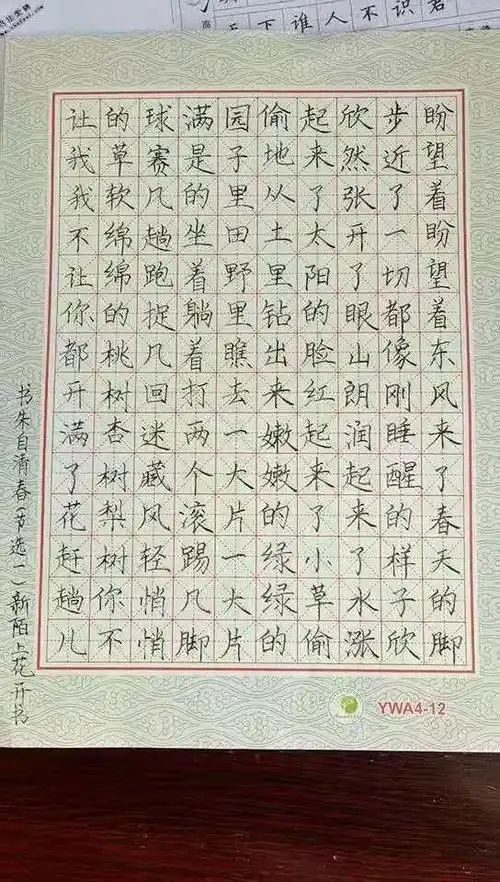 下谁人不识君
盼望着盼望着东风来了春天的脚
步近了一切都像刚睡醒的样子欣
欣然张开了眼山朗润起来了水涨
起来了太阳的脸红起来了小草偷
偷地从土里钻出来嫩嫩的绿绿的
园子里田野里瞧去一大片一大片
满是的坐着躺着打两个滚踢几脚
球赛几趟跑捉几回迷藏风轻悄悄
的草软绵绵的桃树杏树梨树你不
让我我不让你都开满了花赶趟儿
书朱自清春(节选一)新陌上花开书
YWA4-12